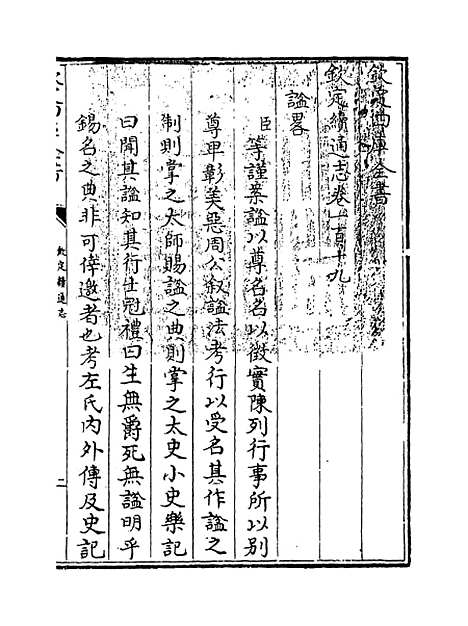 欽定四庫全書
欽定續通志卷一百十九
諡畧
臣等謹案諡以尊名名以徵實陳列行事所以别
尊卑彰美惡周公叙諡法考行以受名其作諡之
制則掌之太師賜諡之典則掌之太史小史樂記
曰聞其諡知其行士冠禮曰生無爵死無諡明乎
錫名之典非可倖邀者也考左氏内外傳及史記
欽定續通志